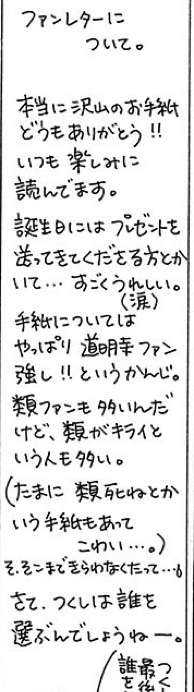 ファンレターに
ついて。
本当に沢山のお手紙
どうもありがとう!!
いつも楽しみに
読んでます。
誕生日にはプレゼントを
送ってきてくださる方とか
いて…すごくうれしい。
(涙)
手紙については
やっぱり道明寺ファン
強し!!というかんじ。
類ファンも多いんだ
けど、類がキライと
いう人も多い。
(たまに類死ねとか
いう手紙もあって
こわい…。)
そ、そこまできらわなくたって…。
さて、つくしは誰を
選ぶんでしょうねー。
(最後
誰を
つく